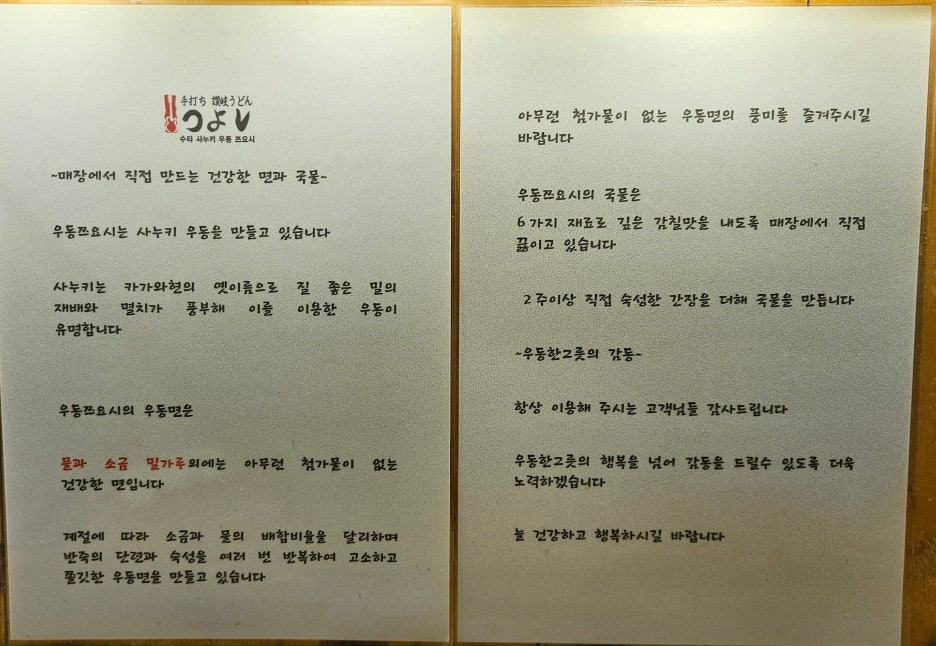 手打ち 讃岐うどん
つよし
수타 사누키 우동 쯔요시
~매장에서 직접 만드는 건강한 면과 국물~
우동쯔요시는 사누키 우동을 만들고 있습니다
사누키는 카가와현의 옛이름으로 질 좋은 밀의
재배와 멸치가 풍부해 이를 이용한 우동이
유명합니다
우동쯔요시의 우동면은
물과 소금 밀가루외에는 아무런 첨가물이 없는
건강한 면입니다
계절에 따라 소금과 물의 배합비율을 달리하며
반죽의 단련과 숙성을 여러 번 반복하여 고소하고
쫄깃한 우동면을 만들고 있습니다
아무런 첨가물이 없는 우동면의 풍미를 즐겨주시길
바랍니다
우동쯔요시의 국물은
6가지 재료로 깊은 감칠맛을 내도록 매장에서 직접
끓이고 있습니다
2주이상 직접 숙성한 간장을 더해 국물을 만듭니다
~우동한그릇의 감동~
항상 이용해 주시는 고객님들 감사드립니다
우동한그릇의 행복을 넘어 감동을 드릴수 있도록 더욱
노력하겠습니다
늘 건강하고 행복하시길 바랍니다